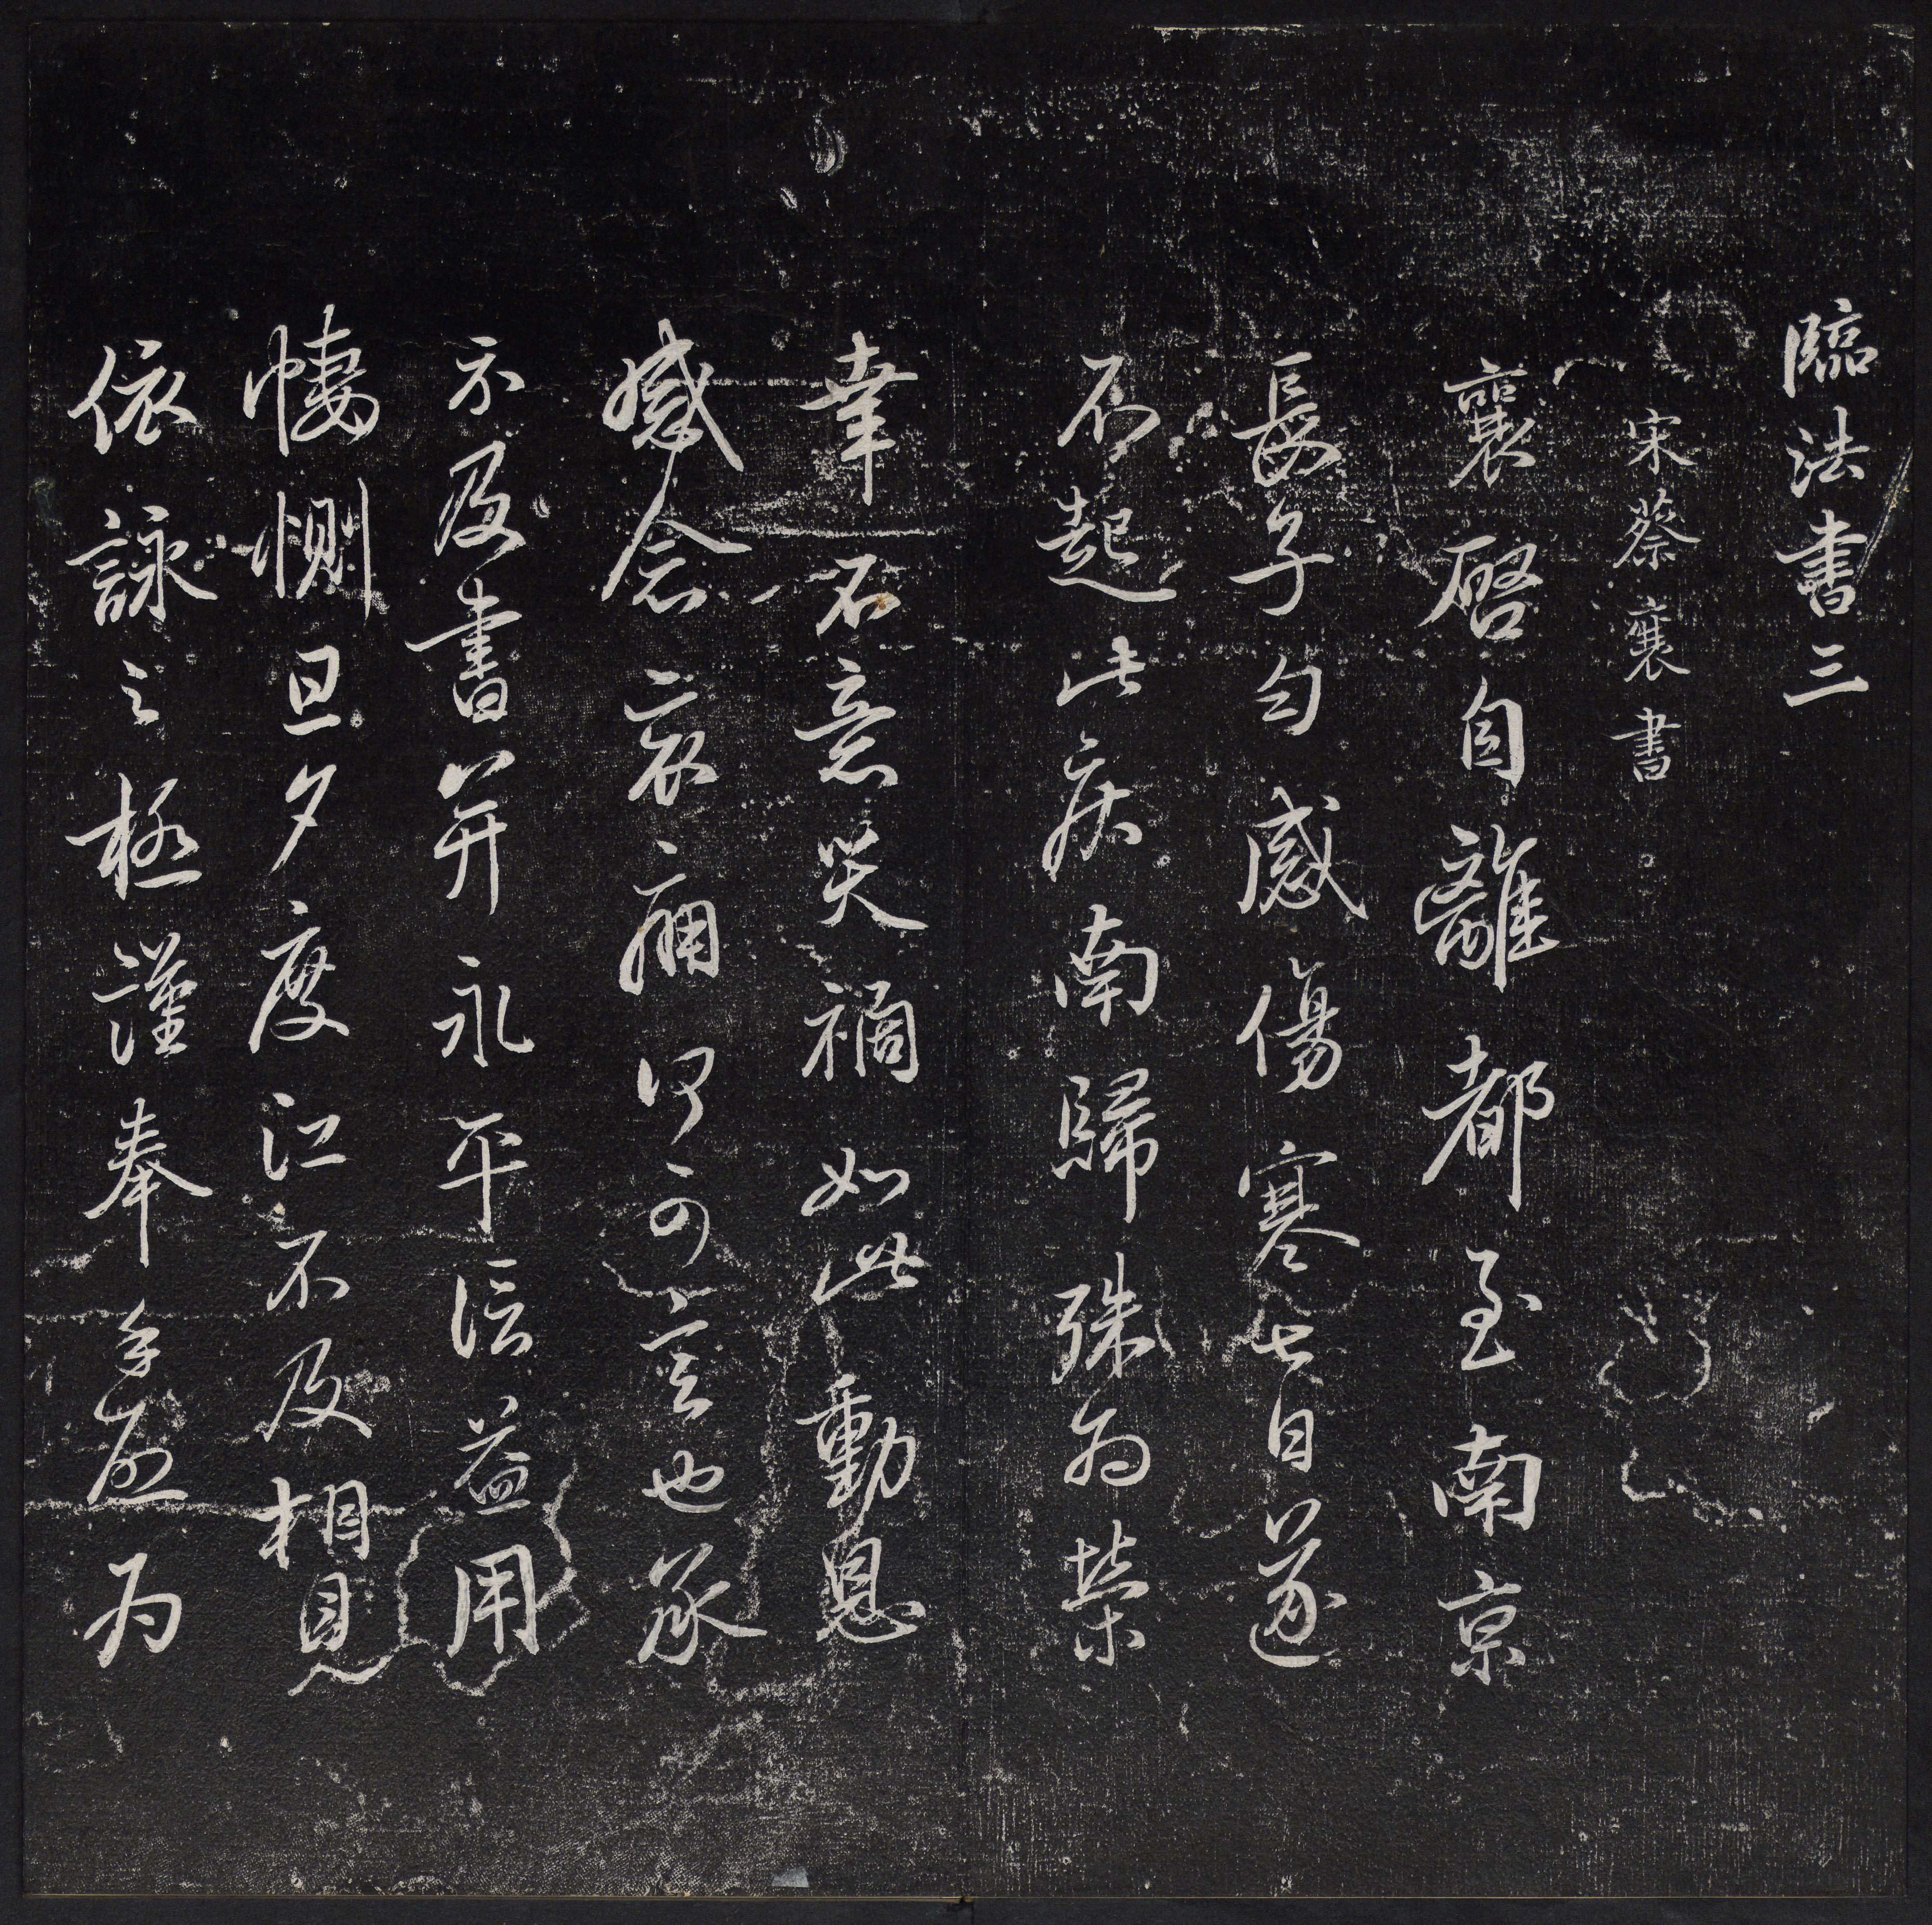 臨法書三
宋蔡襄書
襄啓自離都至南京
長子勻感傷寒七日遂
不起此疾南歸殊為榮
幸不意災禍如此動息
感念哀痛何可言也承
示及書并永平信益用
悽惻旦夕度江不及相見
依詠之極謹奉手啟為